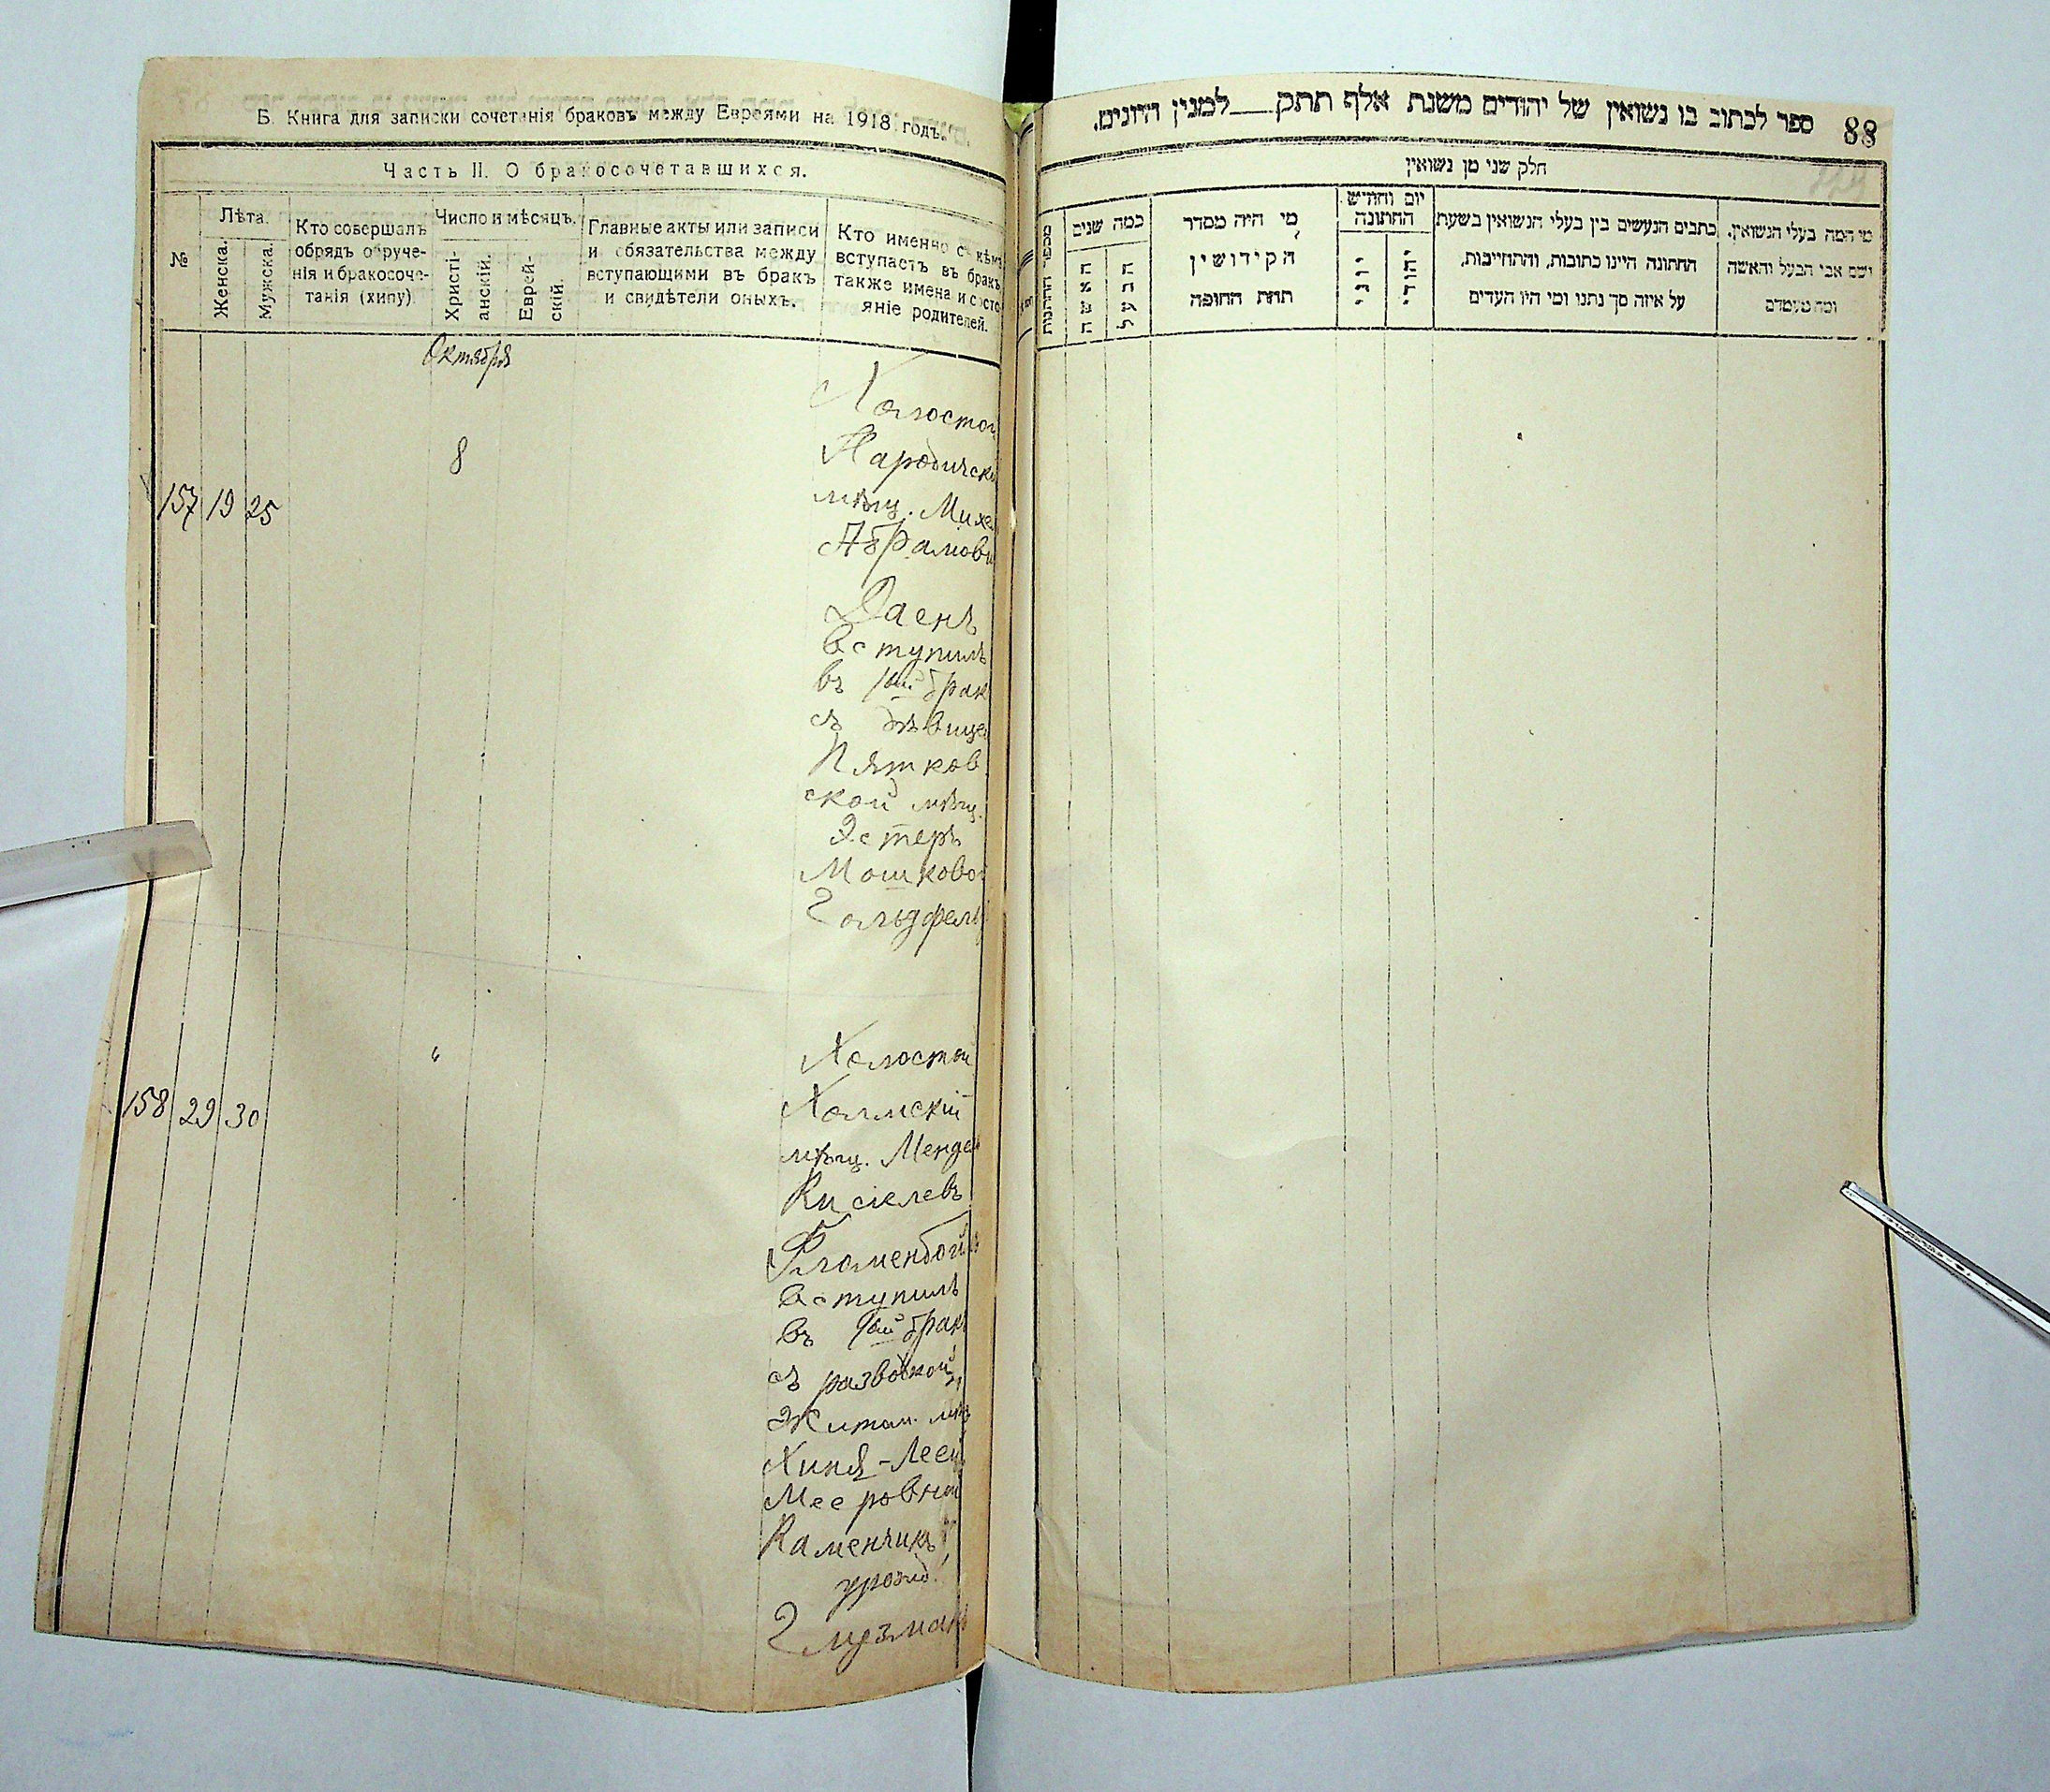 Б. Книга для записки сочетанія браковъ между Евреями на 1918 годъ.
Часть II. О бракосочетавшихся.
№
Лѣта.
Женска.
Мужска.
Кто совершалъ
обрядъ обруче-
нія и бракосоче-
танія (хипу)
Число и мѣсяцъ.
Христі-
анскій.
Еврей-
скій.
Главные акты или записи
и обязательства между
вступающими въ бракъ
и свидѣтели оныхъ.
Кто именно съ кѣмъ
вступаетъ въ бракъ
также имена и состо
яніе родителей.
Октября
8
157 19 25
Холостой
Народичскі
мѣщ. Михе
Абрамови
Даенъ
вступилъ
въ 1ый брак
съ дѣвицей
Пятков
ской мѣщ.
Эстеръ
Мошковой
Гольдфель
"
158 29 30
Холостой
Холмскій
мѣщ. Менде
Кисіелевъ
Фломенбой
вступилъ
въ 1ый брак
съ разводкой
Житом. мѣ
Хиня-Леей
Мееровной
Каменчикъ
урожд.
Глузман
88
ספר לכתוב בו נשואין של יהודים משנת אלף תתק למנין היונים.
חלק שני מן נשואין
מי המה בעלי הנשואין.
ושם אבי הבעל והאשה
ומה מעמדם
כתבים הנעשים בין בעלי הנשואין בשעת
החתונה היינו כתובות, והתחייבות,
על איזה סך נתנו ומי היו העדים
יום וחודש
החתונה
יהודי
יוני
מי היה מסדר
הקידושין
תחת החופה
כמה שנים
הבעל
האשה
מספר החתונות